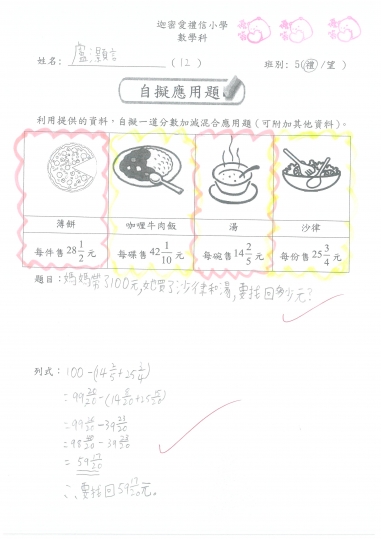 迦密愛禮信小學
數學科
姓名： 盧灝言 （ 12 ） 班別: 5(禮 / 望 )
自擬應用題
利用提供的資料，自擬一道分數加減混合應用題（可附加其他資料）。
薄餅 咖喱牛肉飯 湯 沙律
每件售 28 1/2 元 每碟售 42 1/10 元 每碗售 14 2/5 元 每份售 25 3/4 元
題目： 媽媽帶了100元,她買了沙律和湯,要找回多少元?
列式： 100 -(14 2/5 + 25 3/4)
= 99 20/20 -(14 8/20 + 25 15/20)
= 99 20/20 - 39 23/20
= 98 40/20 - 39 23/20
= 59 17/20
∴ 要找回59 17/20元。